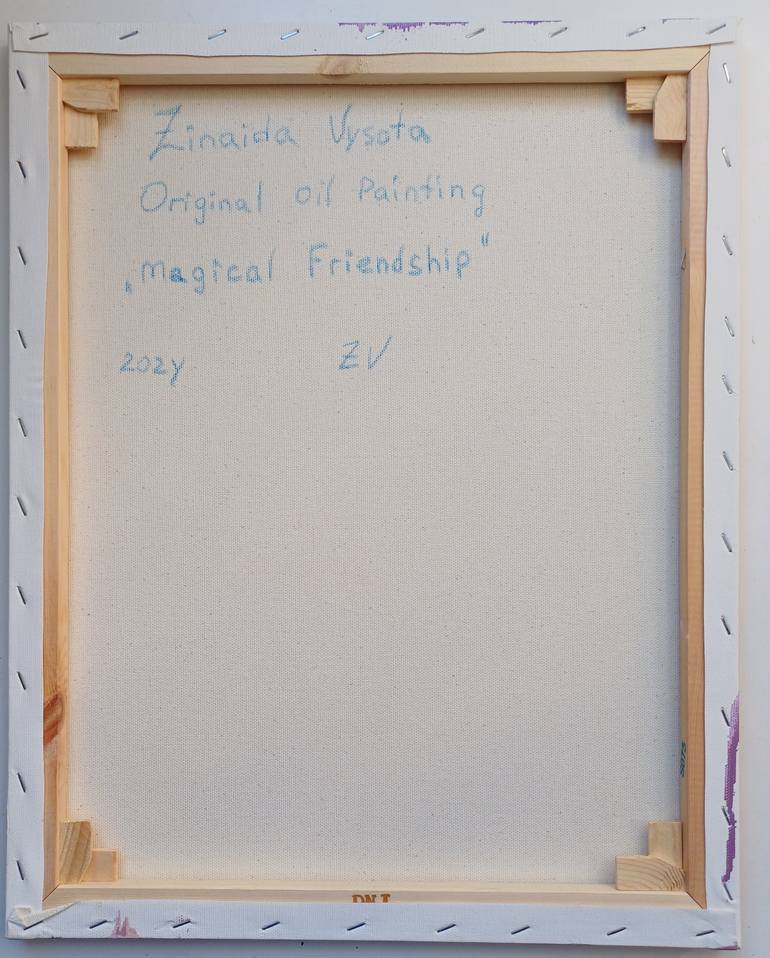 Zinaida Vysota
Original Oil Painting
„Magical Friendship"
202y ZV